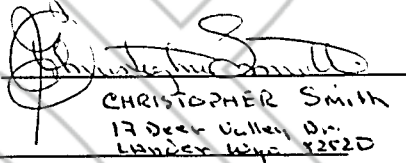 Christopher Smith
CHRISTOPHER Smith
17 Deer Valley Dr.
LANDER Wyo. 82520